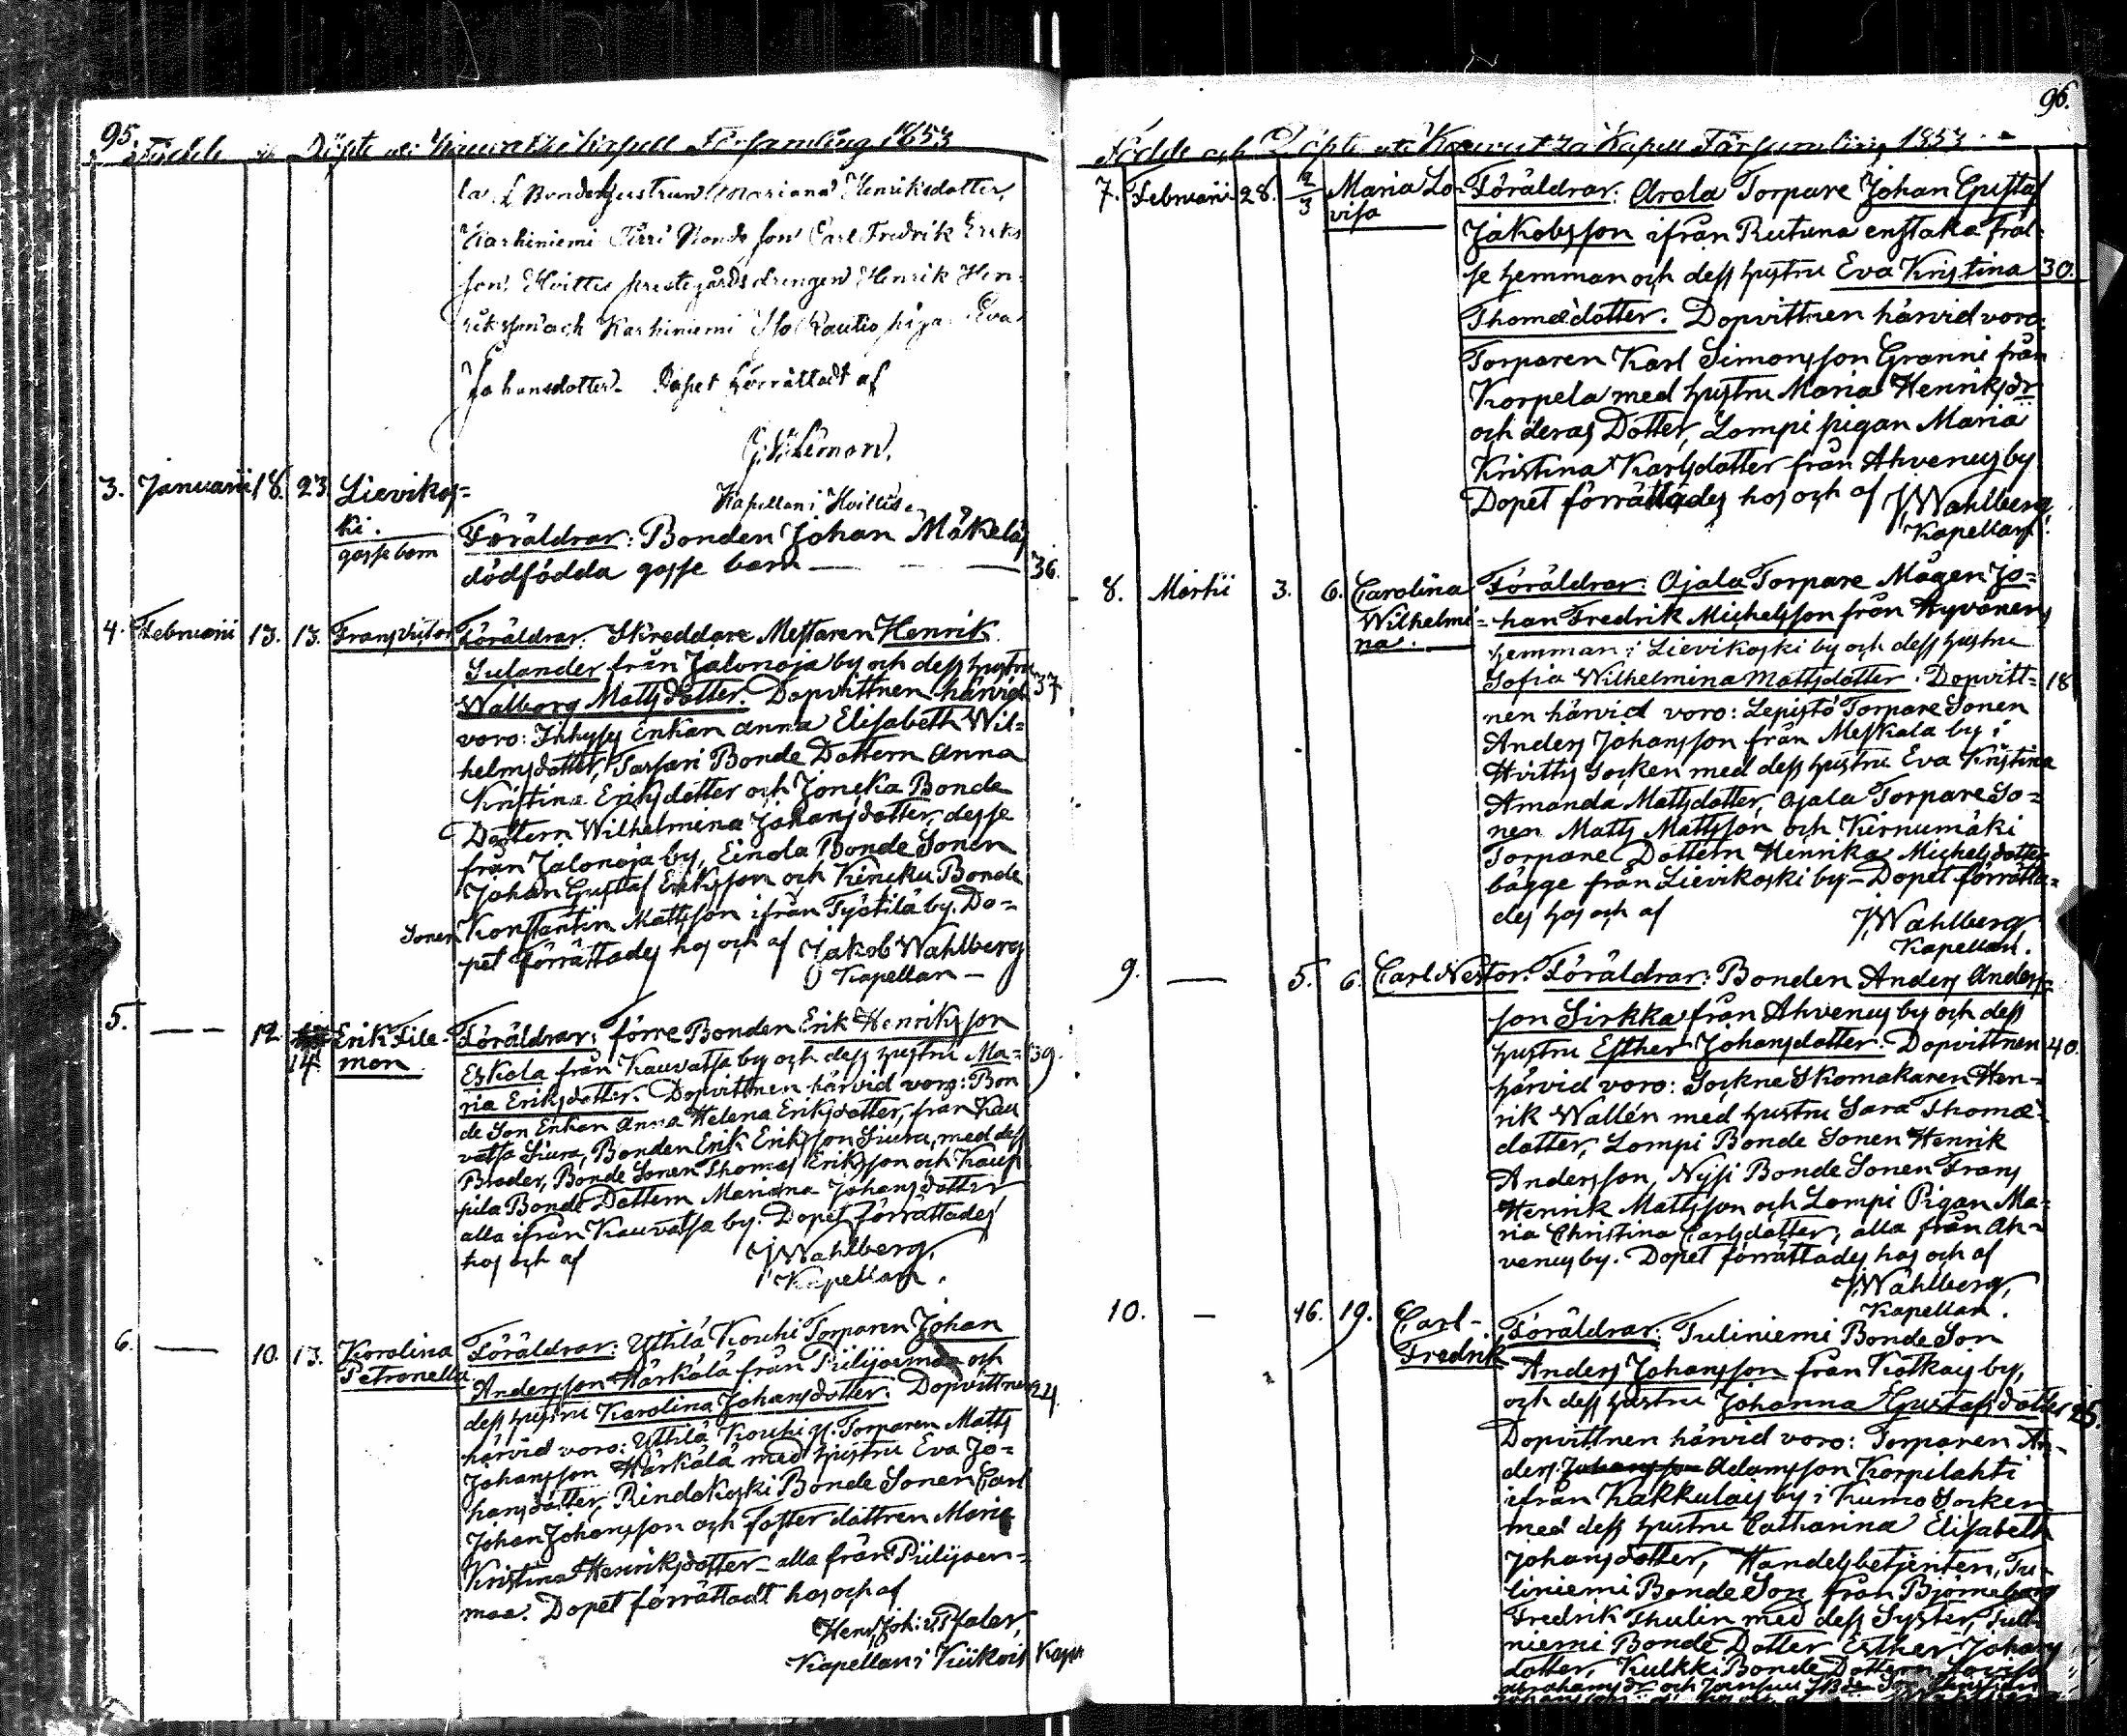 95.
Födde och Döpte uti Kauvatsa Kapell Församling 1853
la, Bondehustrun Mariana Henriksdotter,
Karhiniemi Bonde son Carl Fredrik Eriks
son, Hvittis prestegårds drengen Henrik Hen-
riksson och Karhiniemi Rautio piga Eva
Johansdotter. Dopet förrättadt af
Kapellan i Hvittis.
3. Januarii 18. 23. Lievikos=
ki.
gosse barn
Föräldrar: Bonden Johan Mäkeläs
dödfödda gosse barn — — — 36.
4. Februarii 13. 13. Frans Victor
Föräldrar: Skreddare Mestaren Henrik
Sulander från Jalonoja by och dess hustru
Walborg Mattsdotter. Dopvittnen härvid 37
voro: Enkan Anna Elisabeth Wil=
helmsdotter, Sassari Bonde Dottern Anna
Kristina Eriksdotter och Jonska Bonde
Dottern Wilhelmina Johansdotter, desse
från Jalonoja by, Einola Bonde Sonen
Johan Gustaf Eriksson och Bonde
Sonen Konstantin Mattsson ifrån Työstilä by. Do=
pet förrättades hos och af Jakob Wahlberg
Kapellan —
5. — — 12. 14. Erik File-
mon
Föräldrar: förre Bonden Erik Henriksson
Eskola från Kauvatsa by och dess hustru Ma= 39.
ria Eriksdotter. Dopvittnen härvid voro: Bon
de Son Enkan Anna Helena Eriksdotter, från Kau
vatsa Siura, Bonden Erik Eriksson Siura, med dess
Broder, Bonde Sonen Thomas Eriksson och Kaup
pila Bonde Dottern Mariana Johansdotter
alla ifrån Kauvatsa by. Dopet förrättades
hos och af J. Wahlberg,
Kapellan.
6. — 10. 13. Karolina
Petronella
Föräldrar: Uttila Kouhi Torparen Johan
Andersson Härkälä från Piilijoenmaa och
dess hustru Karolina Johansdotter. Dopvittnen 24.
härvid voro: Uttila Kouhi Torparen Matts
Johansson Härkälä med hustru Eva Jo=
hansdotter, Rindakoski Bonde Sonen Carl
Johan Johansson och foster dottren Maria
Kristina Henriksdotter – alla från Piilijoen=
maa. Dopet förrättadt hos och af
Henr. Joh. v. Pfaler,
Kapellan i Kiikois
96.
Födde och Döpte uti Kauvatsa Kapell Församling 1853.
7. Februarii 28. 2/3 Maria Lo-
visa
Föräldrar: Arola Torpare Johan Gustaf
Jakobsson ifrån Rutuna enstaka fräl=
se hemman och dess hustru Eva Kristina 30.
Thomædotter. Dopvittnen härvid voro:
Torparen Karl Simonsson Granni från
Korpela med hustru Maria Henriksdr
och deras Dotter, Lompi pigan Maria
Kristina Karlsdotter från Ahvenus by
Dopet förrättades hos och af J. Wahlberg
Kapellan.
8. Martii 3. 6. Carolina
Wilhelmi=
na.
Föräldrar: Ojala Torpare Mågen Jo=
han Fredrik Michelsson från Hyvönens
hemman i Lievikoski by och dess hustru
Sofia Wilhelmina Mattsdotter. Dopvitt= 18
nen härvid voro: Lepistö Torpare Sonen
Anders Johansson från Meskala by i
Hvittis Socken med dess hustru Eva Kristina
Amanda Mattsdotter, Ojala Torpare So=
nen Matts Mattsson och Kirnumäki
Torpare Dottern Henrika Michelsdotter
bägge från Lievikoski by – Dopet förrätta=
des hos och af J. Wahlberg
Kapellan.
9. — 5. 6. Carl Nestor.
Föräldrar: Bonden Anders Anders=
son Sirkka från Ahvenus by och dess
hustru Esther Johansdotter. Dopvittnen 40.
härvid voro: Sockne Skomakaren Hen=
rik Wallén med hustru Sara Thomæ=
dotter, Lompi Bonde Sonen Henrik
Andersson, Nyssi Bonde Sonen Frans
Henrik Mattsson och Lompi Pigan Ma=
ria Christina Carlsdotter, alla från Ah=
venus by. Dopet förrättades hos och af
J. Wahlberg,
Kapellan.
10. — 16. 19. Carl-
Fredrik
Föräldrar: Tuliniemi Bonde Son
Anders Johansson från Kotkais by,
och dess hustru Johanna Gustafsdotter 25.
Dopvittnen härvid voro: Torparen An-
ders Johansson Adamsson Korpilahti
ifrån Kakkulais by i Kumo Socken
med dess hustru Catharina Elisabeth
Johansdotter, Handelsbetjenten, Tu-
liniemi Bonde Son från Björneborg
Fredrik Thulin med dess Syster, Tuli-
niemi Bonde Dotter Esther Johans
dotter, Kulkki Bonde Dottern Lovisa
Abrahamsdr och